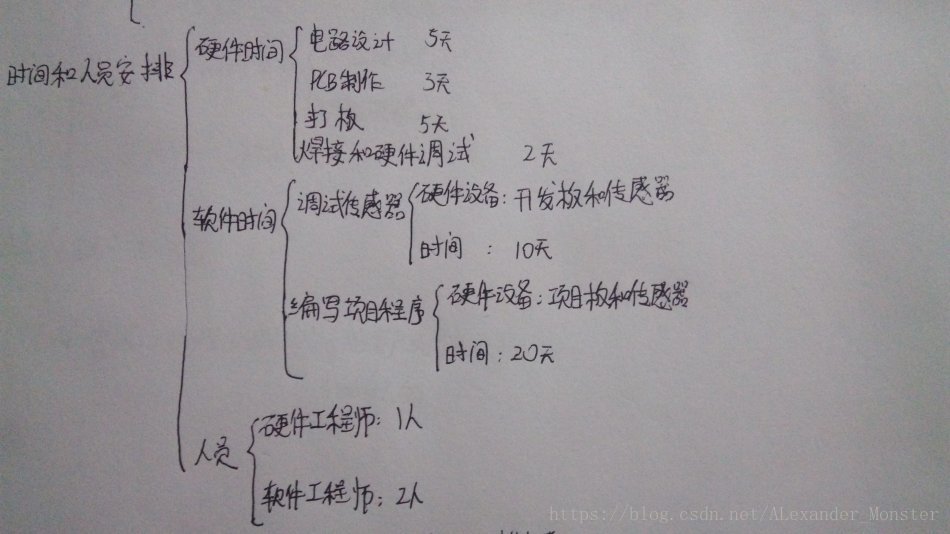 时间和人员安排
硬件时间
电路设计 5天
PCB制作 3天
打板 5天
焊接和硬件调试 2天
软件时间
调试传感器
硬件设备:开发板和传感器
时间 : 10天
编写项目程序
硬件设备:项目板和传感器
时间:20天
人员
硬件工程师:1人
软件工程师:2人
https://blog.csdn.net/ALexander_Monster